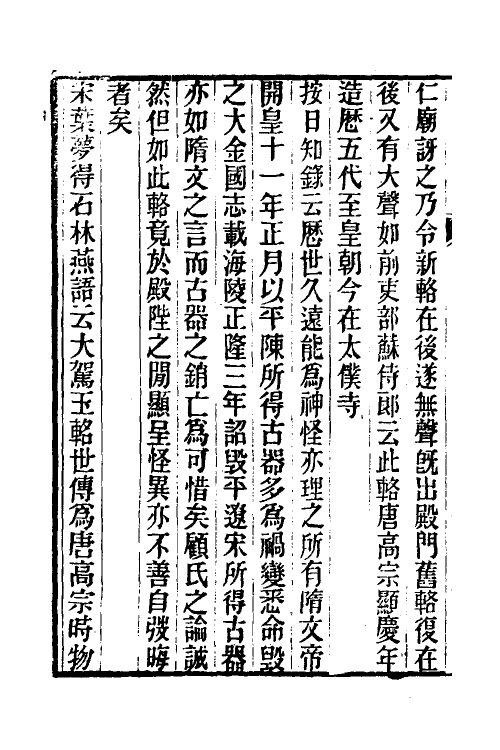 仁廟訝之乃令新輅在後遂無聲旣出殿門舊輅復在
後又有大聲如前吏部蘇侍郎云此輅唐高宗顯慶年
造歷五代至皇朝今在太僕寺
按日知錄云歷世久遠能爲神怪亦理之所有隋文帝
開皇十一年正月以平陳所得古器多爲禍變悉命毀
之大金國志載海陵正隆三年詔毀平遼宋所得古器
亦如隋文之言而古器之銷亡爲可惜矣顧氏之論誠
然但如此輅竟於殿陛之閒顯呈怪異亦不善自韜晦
者矣
宋葉夢得石林燕語云大駕玉輅世傳爲唐高宗時物